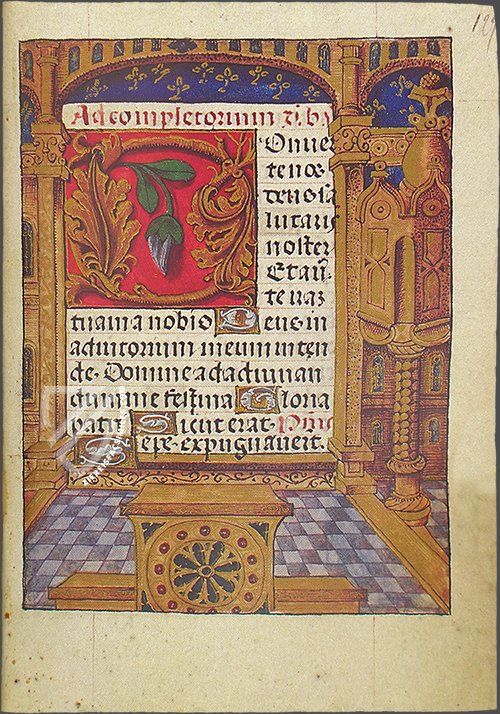 Ad completorium
Conuer
te nos
deus sa
lutaris
noster
Et aũ
te iraz
tuam a nobis Deus in
adiutorium meum inten
de. Domine ad adiuuan
dum me festina Gloria
patri Sicut erat.
Sepe. expugnauerũt.